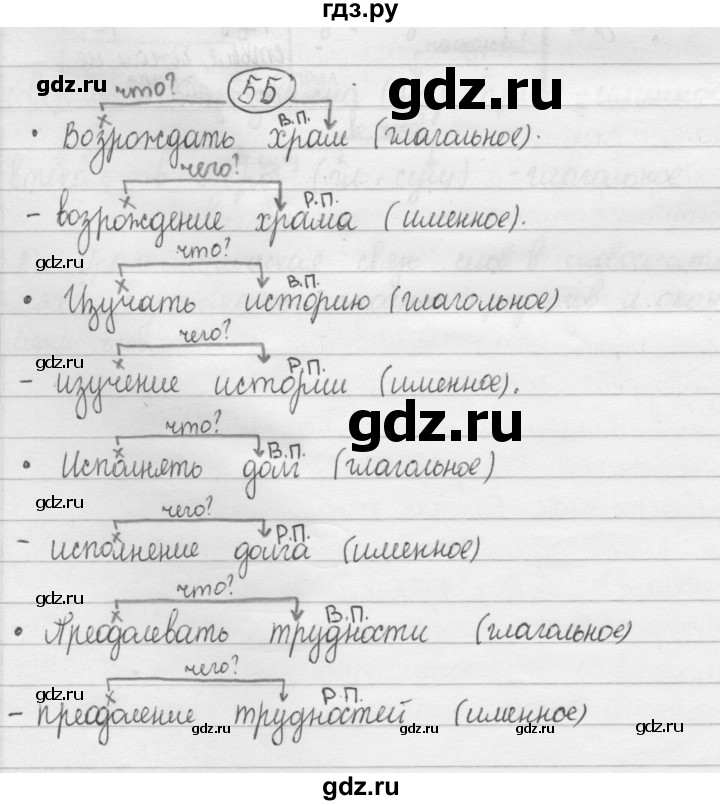 гдз.ру
что? 55
gdz.ru gdz.ru
В.П.
• Возрождать храм (глагольное).
чего?
Р.П.
– возрождение храма (именное).
что?
gdz.ru
В.П.
• Изучать историю (глагольное)
чего?
gdz.ru
Р.П.
– изучение истории (именное).
что? gdz.ru
В.П.
• Исполнять долг (глагольное)
gdz.ru
чего?
Р.П.
– исполнение долга (именное)
что?
gdz.ru
В.П.
• Преодолевать трудности (глагольное)
чего?
gdz.ru
Р.П.
– преодоление трудностей (именное)
gdz.ru gdz.ru gdz.ru
gdz.ru